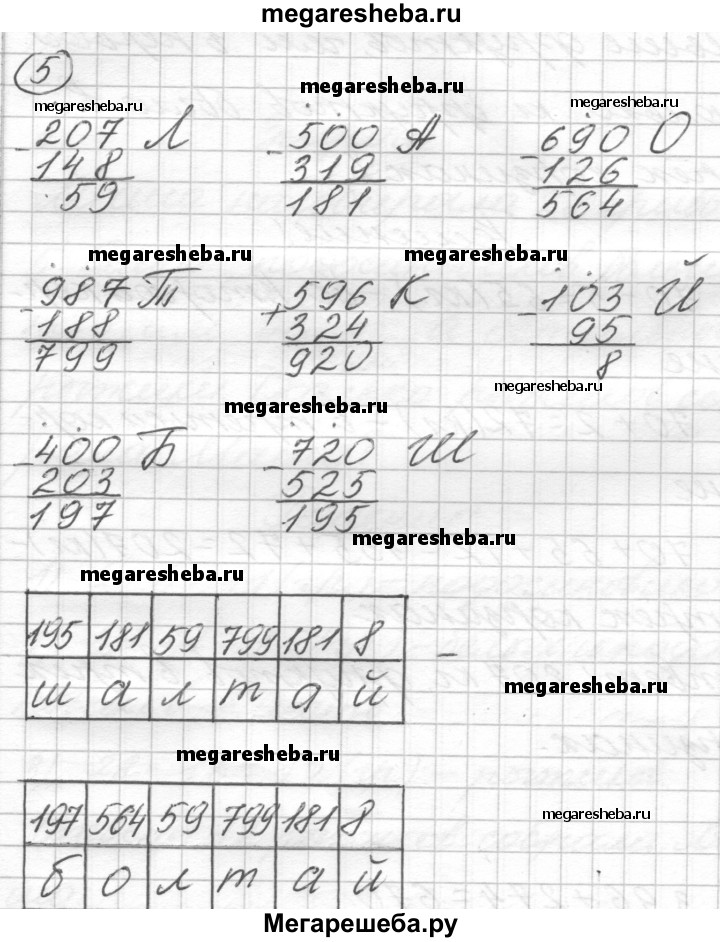 megaresheba.ru
5
megaresheba.ru
megaresheba.ru
megaresheba.ru
- 207 Л - 500 А - 690 О
148 319 126
59 181 564
megaresheba.ru megaresheba.ru
- 987 Т + 596 К - 103 Й
188 324 95
799 920 8
megaresheba.ru
megaresheba.ru
- 400 Б - 720 Ш
203 525
197 195
megaresheba.ru
megaresheba.ru
195 181 59 799 181 8 -
ш а л т а й
megaresheba.ru
megaresheba.ru
197 564 59 799 181 8
megaresheba.ru
б о л т а й
Мегарешеба.ру